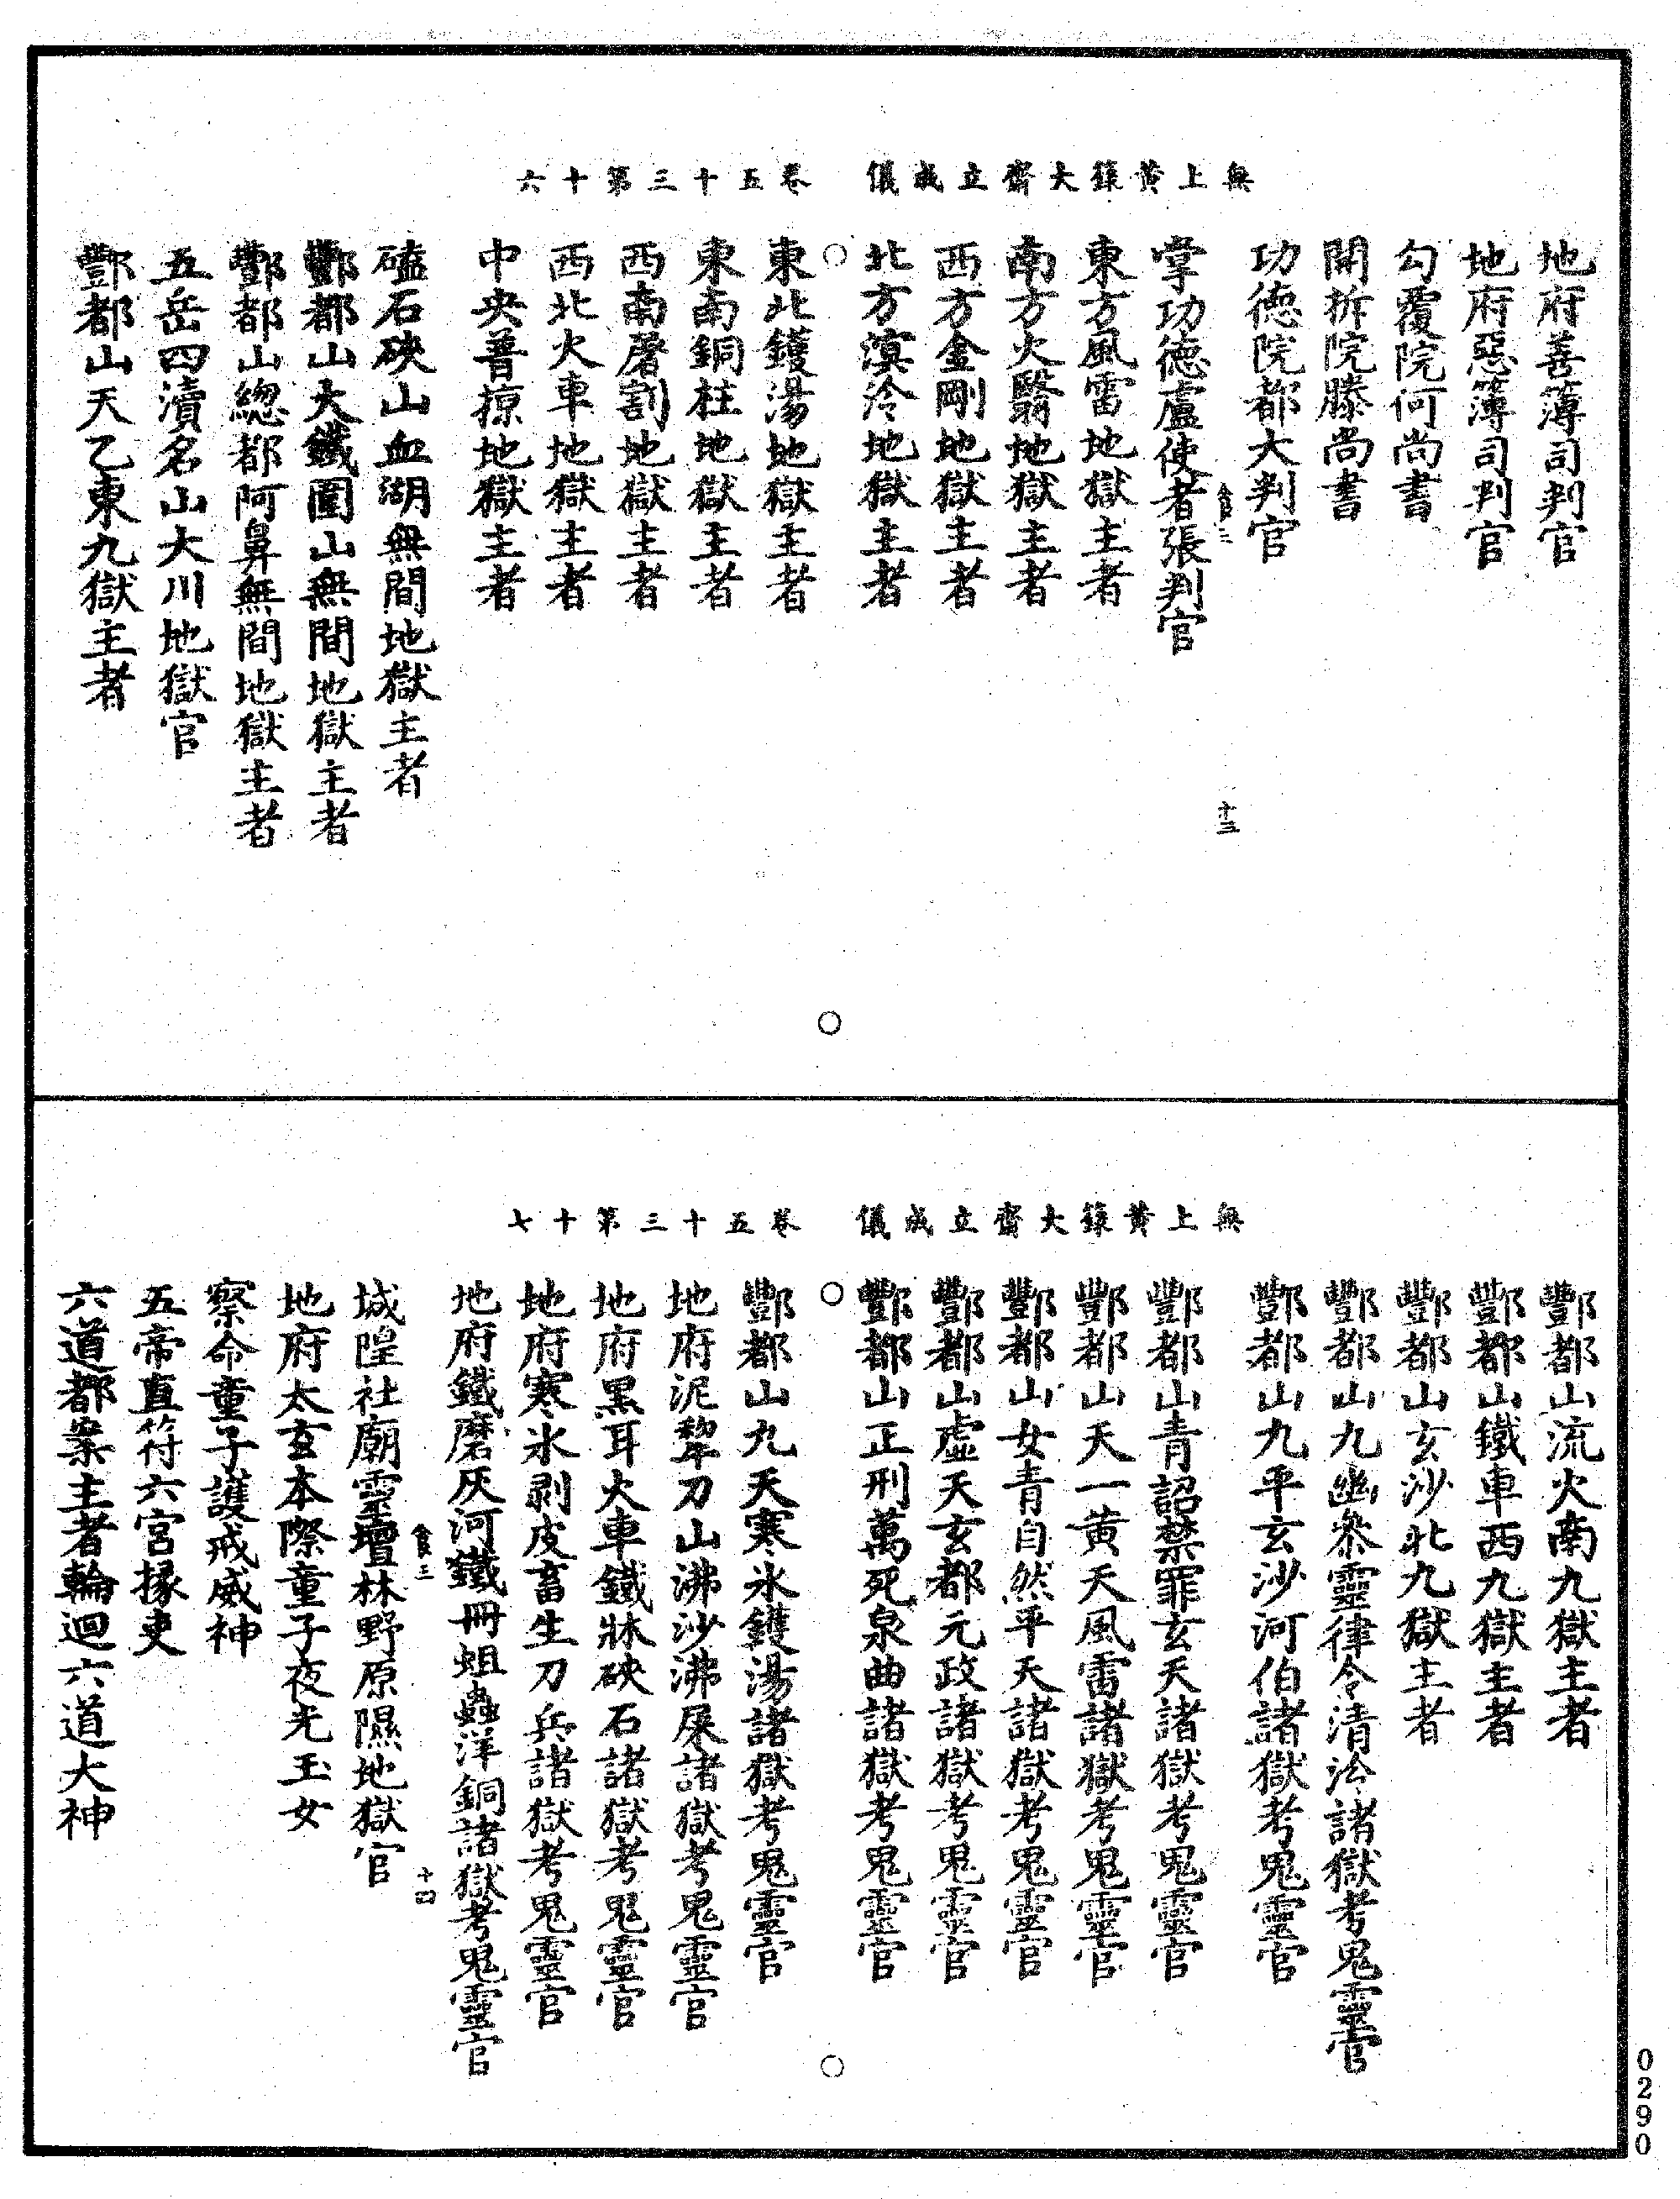 無上黃籙大齋立成儀　卷五十三第十六
地府善簿司判官
地府惡簿司判官
勾覆院何尚書
開拆院滕尚書
功德院都大判官
掌功德盧使者張判官
食三　十三
東方風雷地獄主者
南方火翳地獄主者
西方金剛地獄主者
北方溟泠地獄主者
東北鑊湯地獄主者
東南銅柱地獄主者
西南屠割地獄主者
西北火車地獄主者
中央普掠地獄主者
磕石硤山血湖無間地獄主者
酆都山大鐵圍山無間地獄主者
酆都山總都阿鼻無間地獄主者
五岳四瀆名山大川地獄官
酆都山天乙東九獄主者
無上黃籙大齋立成儀　卷五十三第十七
酆都山流火南九獄主者
酆都山鐵車西九獄主者
酆都山玄沙北九獄主者
酆都山九幽叅靈律令清泠諸獄考鬼靈官
酆都山九平玄沙河伯諸獄考鬼靈官
酆都山青詔禁罪玄天諸獄考鬼靈官
酆都山天一黃天風雷諸獄考鬼靈官
酆都山女青自然平天諸獄考鬼靈官
酆都山虛天玄都元政諸獄考鬼靈官
酆都山正刑萬死泉曲諸獄考鬼靈官
酆都山九天寒氷鑊湯諸獄考鬼靈官
地府泥犂刀山沸沙沸屎諸獄考鬼靈官
地府黑耳火車鐵牀硤石諸獄考鬼靈官
地府寒氷剥皮畜生刀兵諸獄考鬼靈官
地府鐵磨灰河鐵冊蛆蟲洋銅諸獄考鬼靈官
食三　十四
城隍社廟靈壇林野原隰地獄官
地府太玄本際童子夜光玉女
察命童子護戒威神
五帝直符六宮掾吏
六道都案主者輪迴六道大神
0290